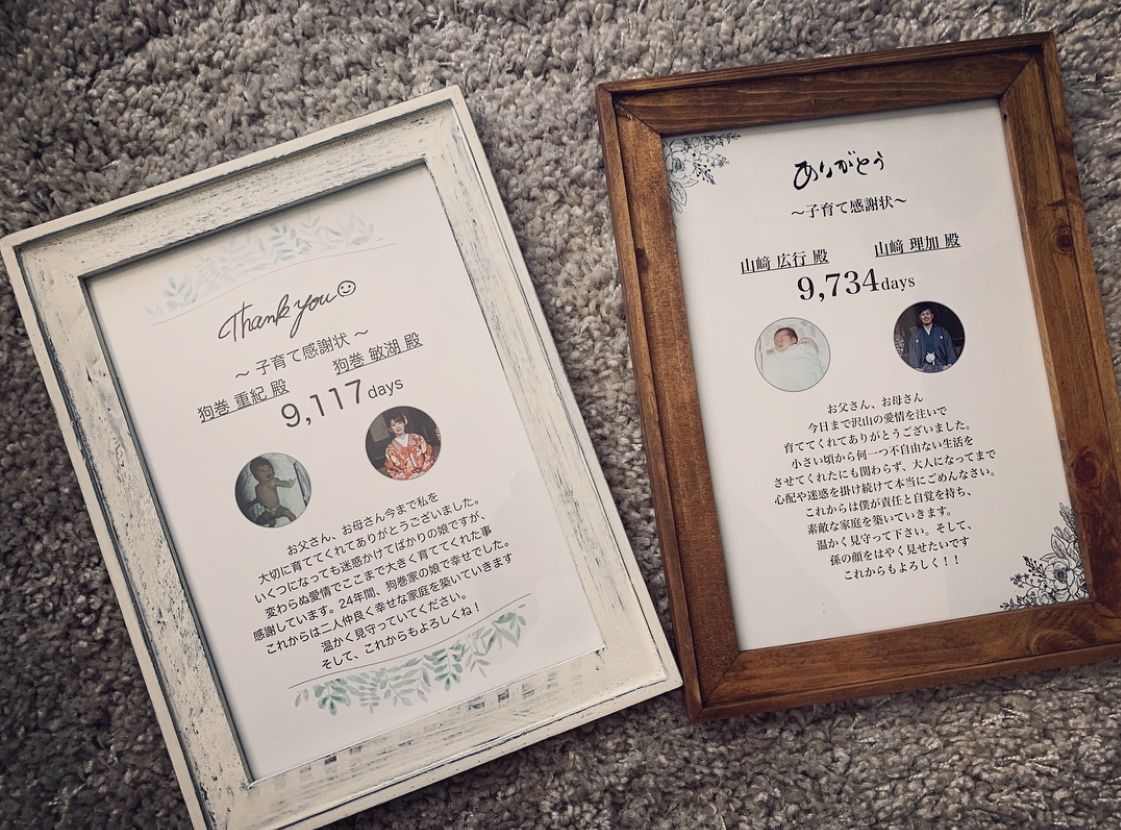 Thank you
〜 子育て感謝状 〜
狗巻 重紀 殿 狗巻 敏湖 殿
9,117 days
お父さん、お母さん今まで私を
大切に育ててくれてありがとうございました。
いくつになっても迷惑かけてばかりの娘ですが、
変わらぬ愛情でここまで大きく育ててくれた事
感謝しています。24年間、狗巻家の娘で幸せでした。
これからは二人仲良く幸せな家庭を築いていきます
温かく見守っていてください。
そして、これからもよろしくね！
ありがとう
〜子育て感謝状〜
山﨑 広行 殿 山﨑 理加 殿
9,734days
お父さん、お母さん
今日まで沢山の愛情を注いで
育ててくれてありがとうございました。
小さい頃から何一つ不自由ない生活を
させてくれたにも関わらず、大人になってまで
心配や迷惑を掛け続けて本当にごめんなさい。
これからは僕が責任と自覚を持ち、
素敵な家庭を築いていきます。
温かく見守って下さい。そして、
孫の顔をはやく見せたいです
これからもよろしく！！